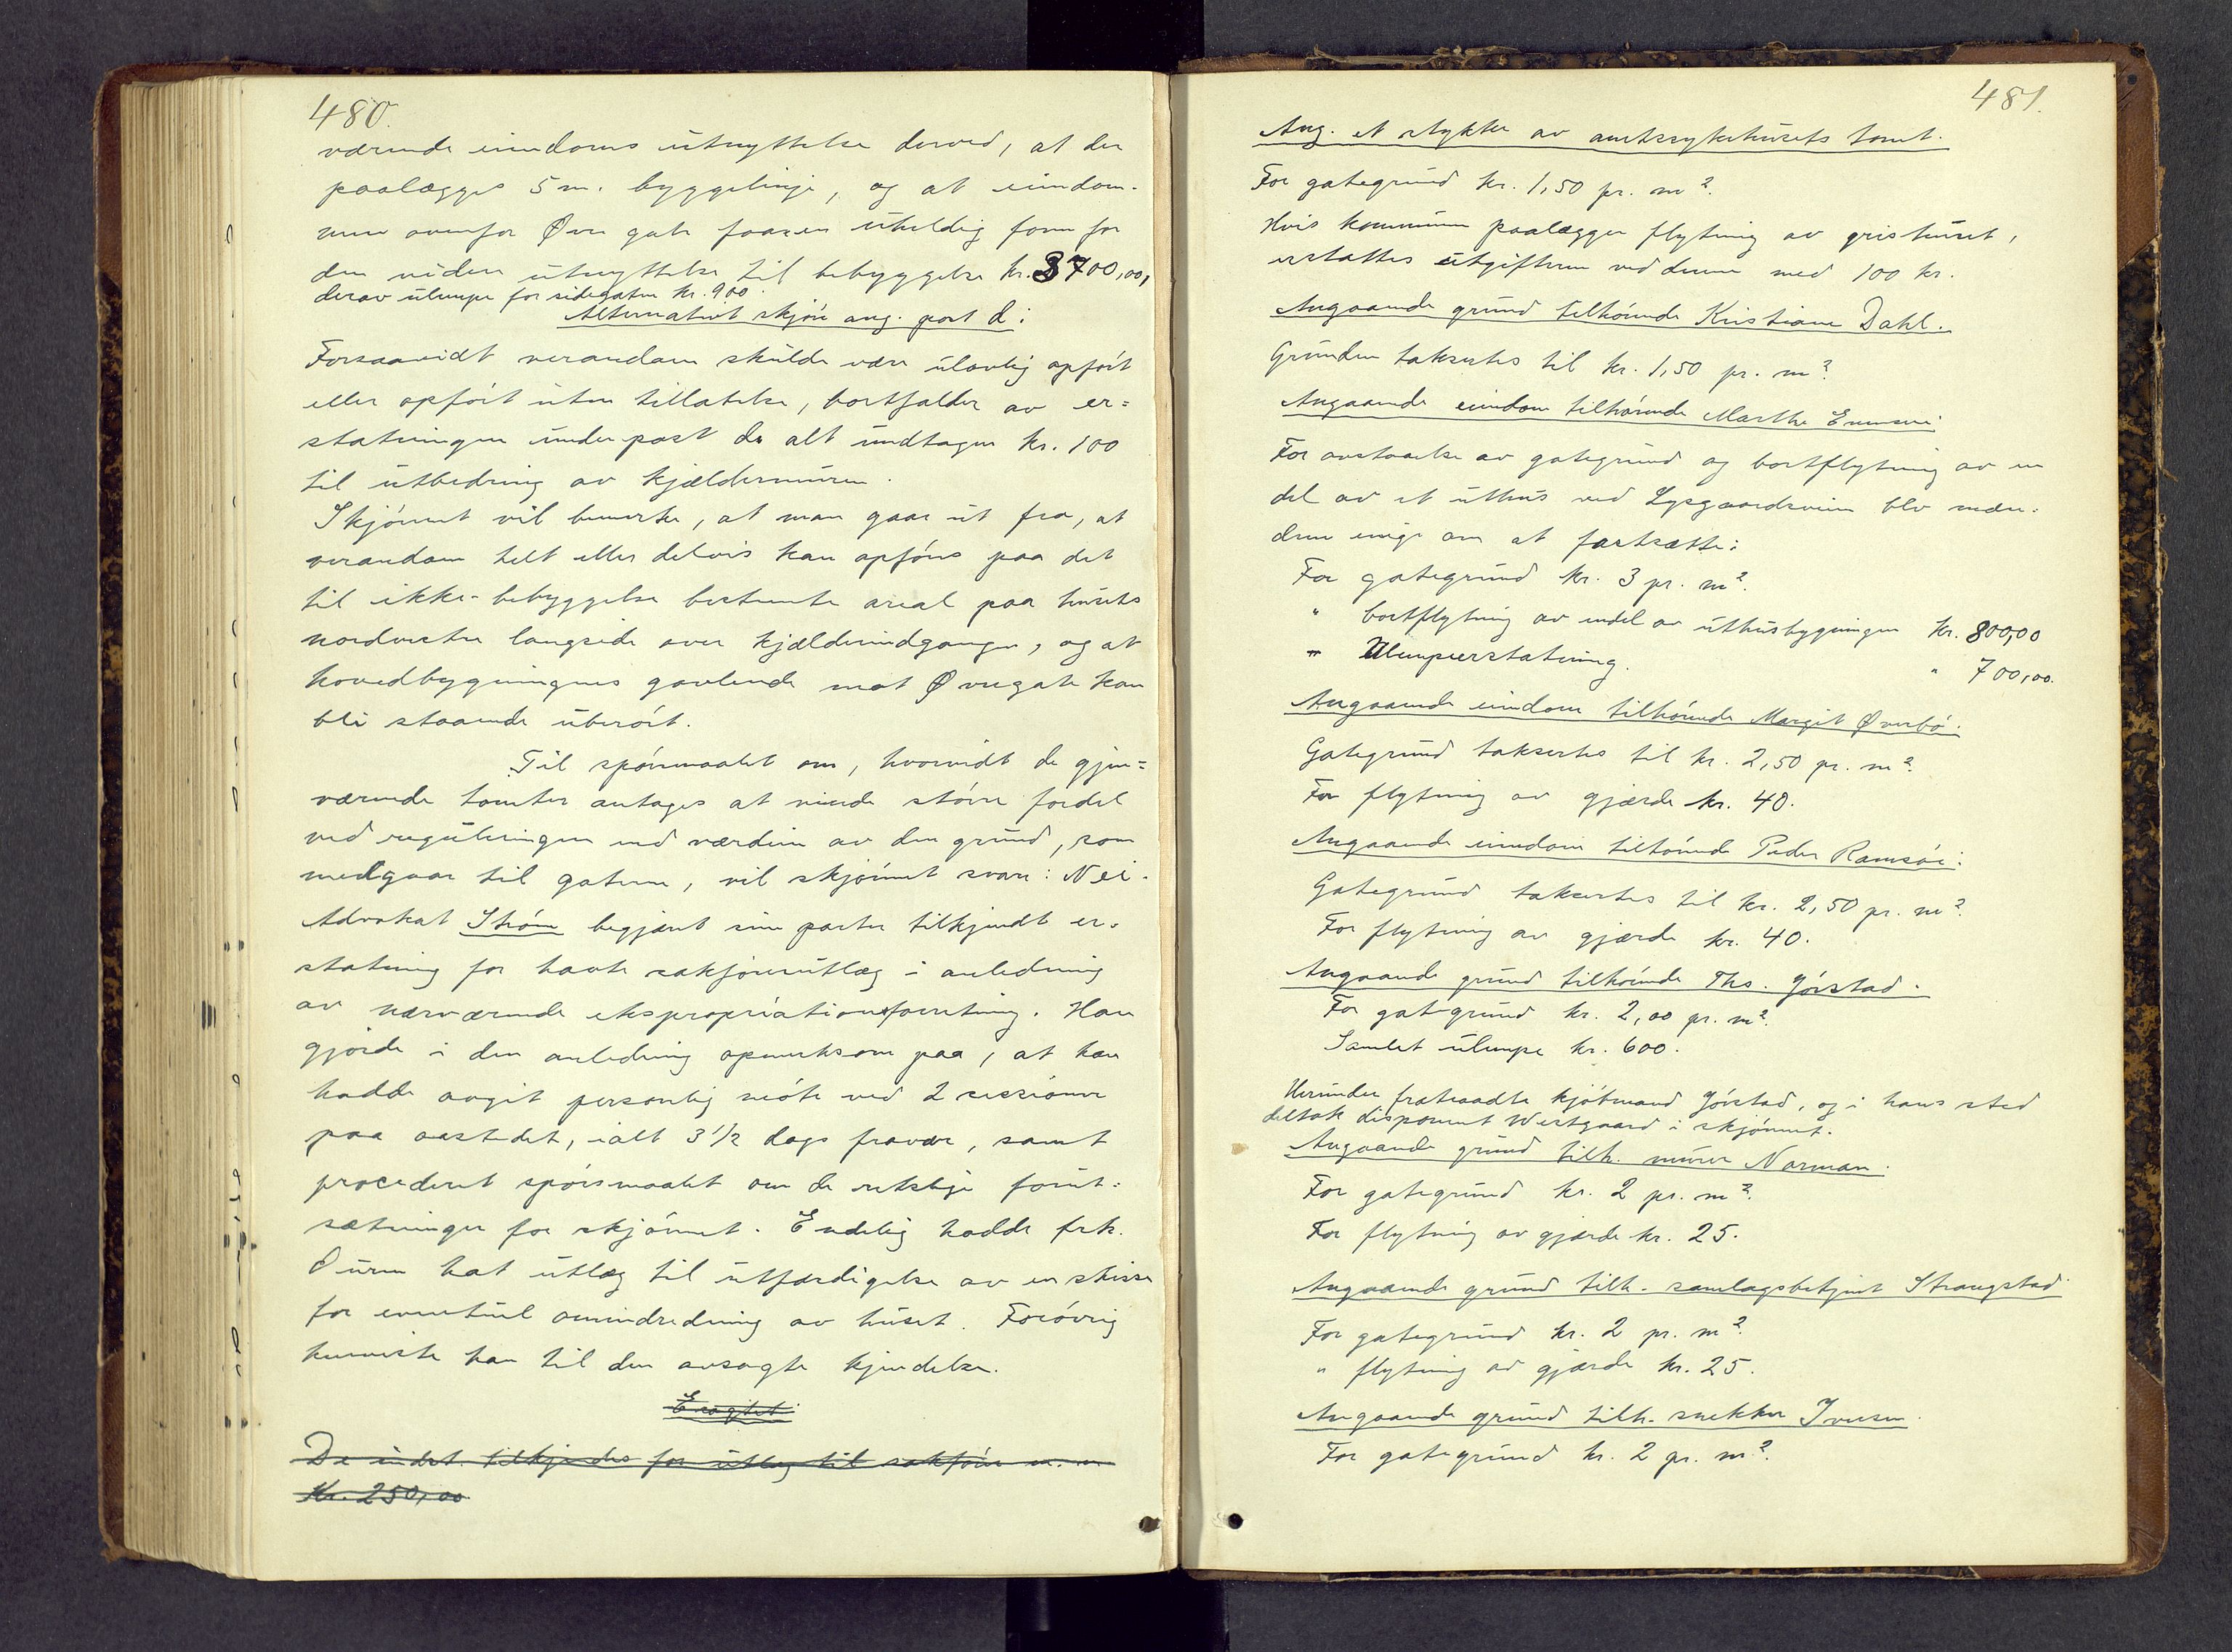 480.
værende eiendoms utnyttelse derved, at der
paalægges 5 m. byggelinje, og at eiendom-
men ovenfor Øvre gate faar en uheldig form for
den videre utnyttelse til bebyggelse kr. 3700,00,
derav ulempe for sidegaten kr. 900.
Alternativt skjøn ang. post d:
Forsaavidt verandaen skulde være ulovlig opført
eller opført uten tillatelse, bortfalder av er=
statningen under post d. alt undtagen kr. 100
til utbedring av kjældermuren.
Skjønnet vil bemerke, at man gaar ut fra, at
verandaen helt eller delvis kan opføres paa det
til ikke-bebyggelse bestemte areal paa husets
nordvestre langside over kjælderindgangen, og at
hovedbygningens gavlende mot Øvregate kan
bli staaende uberørt.
Til spørsmaalet om, hvorvidt de gjen=
værende tomter antages at vinde større fordel
ved reguleringen end værdien av den grund, som
medgaar til gaterne, vil skjønnet svare: Nei.
Advokat Strøm begjært sine parter tilkjendt er=
statning for havte sakførerutlæg i anledning
av nærværende ekspropriationsforretning. Han
gjorde i den anledning opmerksom paa, at han
hadde avgit personlig møte ved 2 sessioner
paa aastedet, ialt 3 1/2 dags fravær, samt
procederet spørsmaalet om de retslige forut=
sætninger for skjønnet. Endelig hadde frk.
Duren hat utlæg til utfærdigelse av en skisse
for eventuel omindredning av huset. Forøvrig
henviste han til den avsagte kjendelse.
Eragtet:
De indst. tilkjendes for utlæg til sakfører m. m
Kr. 250,00
481.
Ang. et stykke av amtssykehusets tomt.
For gategrund kr. 1,50 pr. m2.
Hvis kommunen paalægger flytning av grishuset,
erstattes utgifterne ved denne med 100 kr.
Angaaende grund tilhørende Kristiane Dahl.
Grunden taksertes til kr. 1,50 pr. m2.
Angaaende eiendom tilhørende Marthe Evensen:
For avstaaelse av gategrund og bortflytning av en
del av et uthus ved Lysgaardsveien blev mæn=
dene enige om at fastsætte:
For gategrund kr. 3 pr. m2.
" bortflytning av endel av uthusbygningen kr. 800,00
" Ulempeerstatning. " 700,00.
Angaaende eiendom tilhørende Margit Øverbø.
Gategrund taksertes til kr. 2,50 pr. m2.
For flytning av gjærde kr. 40.
Angaaende eiendom tilhørende Peder Ramsøi:
Gategrund taksertes til kr. 2,50 pr. m2.
For flytning av gjærde kr. 40.
Angaaende grund tilhørende Ths. Jørstad.
For gategrund kr. 2,00 pr. m2.
Samlet ulempe kr. 600.
Herunder fratraadte kjøbmand Jørstad, og i hans sted
deltok disponent Westgaard i skjønnet.
Angaaende grund tilh. murer Norman.
For gategrund kr. 2 pr. m2.
For flytning av gjærde kr. 25.
Angaaende grund tilh. samlagsbetjent Strangstad
For gategrund kr. 2 pr. m2.
" flytning av gjærde kr. 25.
Angaaende grund tilh. snekker Iversen.
For gategrund kr. 2 pr. m2.